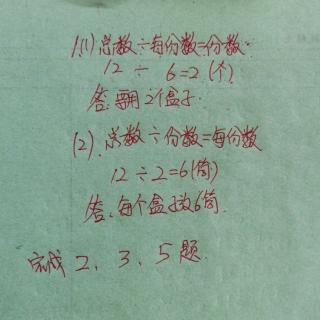 1.(1)总数÷每份数=份数.
12 ÷ 6=2(个)
答:要用2个盒子.
(2).总数÷份数=每份数
12÷2=6(筒)
答,每个盒子放6筒.
完成 2、3、5题.